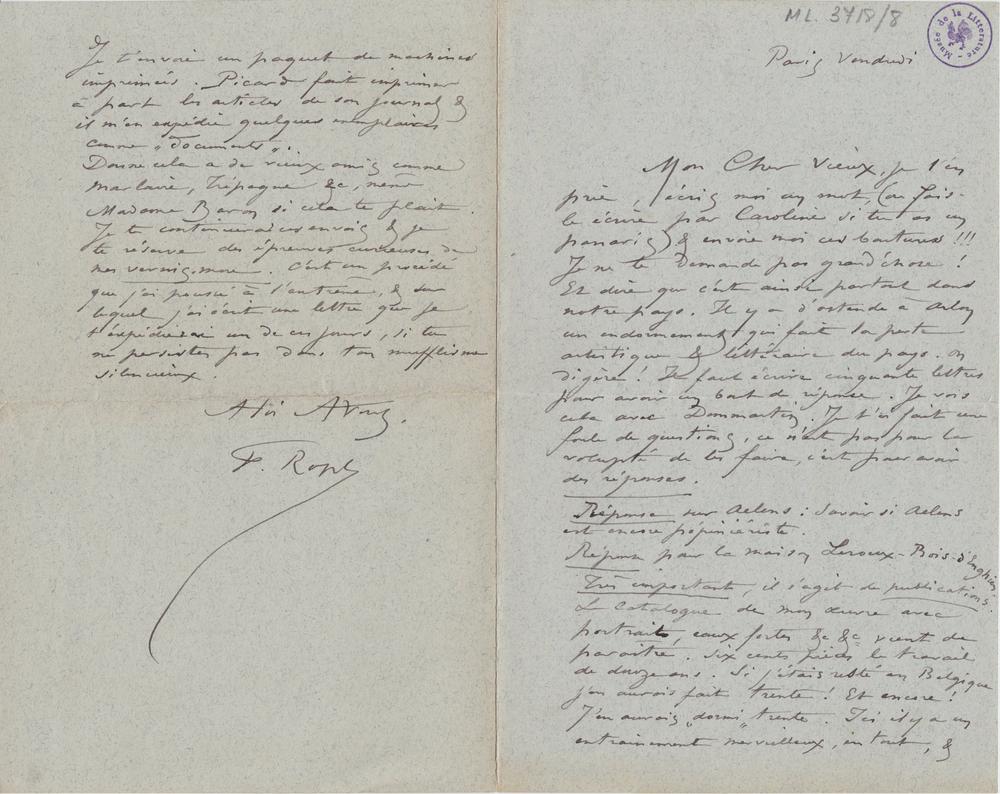 ML. 3718/8
Musée de la Littérature
Paris Vendredi
Mon Cher Vieux, je t'en
prie, écris moi un mot, (ou fais-
le écrire par Caroline si tu as un
panaris) & envoie moi ces boutures !!!
Je ne te demande pas grand'chose !
Et dire que c'est ainsi partout dans
notre pays. Il y a d'Ostende à Arlon
un endormement qui fait la perte
artistique & littéraire du pays. On
digère ! Il faut écrire cinquante lettres
pour avoir un bout de réponse. Je vois
cela avec Dommartin. Je t'ai fait une
foule de questions, ce n'est pas pour la
volupté de les faire, c'est pour avoir
des réponses.
Réponse sur Aelens : savoir si Aelens
est encore pépiniériste.
Réponse pour la maison Leroux-Bois-d'Enghien
Très important, il s'agit de publications.
Le Catalogue de mon œuvre avec
portraits, eaux fortes &c &c vient de
paraître. Six cents pièces le travail
de douze ans. Si j'étais resté en Belgique
j'en aurais fait trente ! Et encore !
J'en aurais „dormi„ trente. Ici il y a un
entrainement merveilleux, en tout, &
Je t'envoie un paquet de machines
imprimés. Picard fait imprimer
à part les articles de son journal &
il m'en expédie quelques exemplaires
comme „documents„.
Donne cela à de vieux amis comme
Marlaire, Trépagne &c, même
Madame Baron si cela te plait.
Je te continuerai ces envois & je
te réserve des épreuves curieuses de
mes vernis-mous. C'est un procédé
que j'ai poussé à l'extrême, & sur
lequel j'ai écrit une lettre que je
t'expédierai un de ces jours, si tu
ne persistes pas dans ton mufflisme
silencieux.
A toi A Vous,
F. Rops